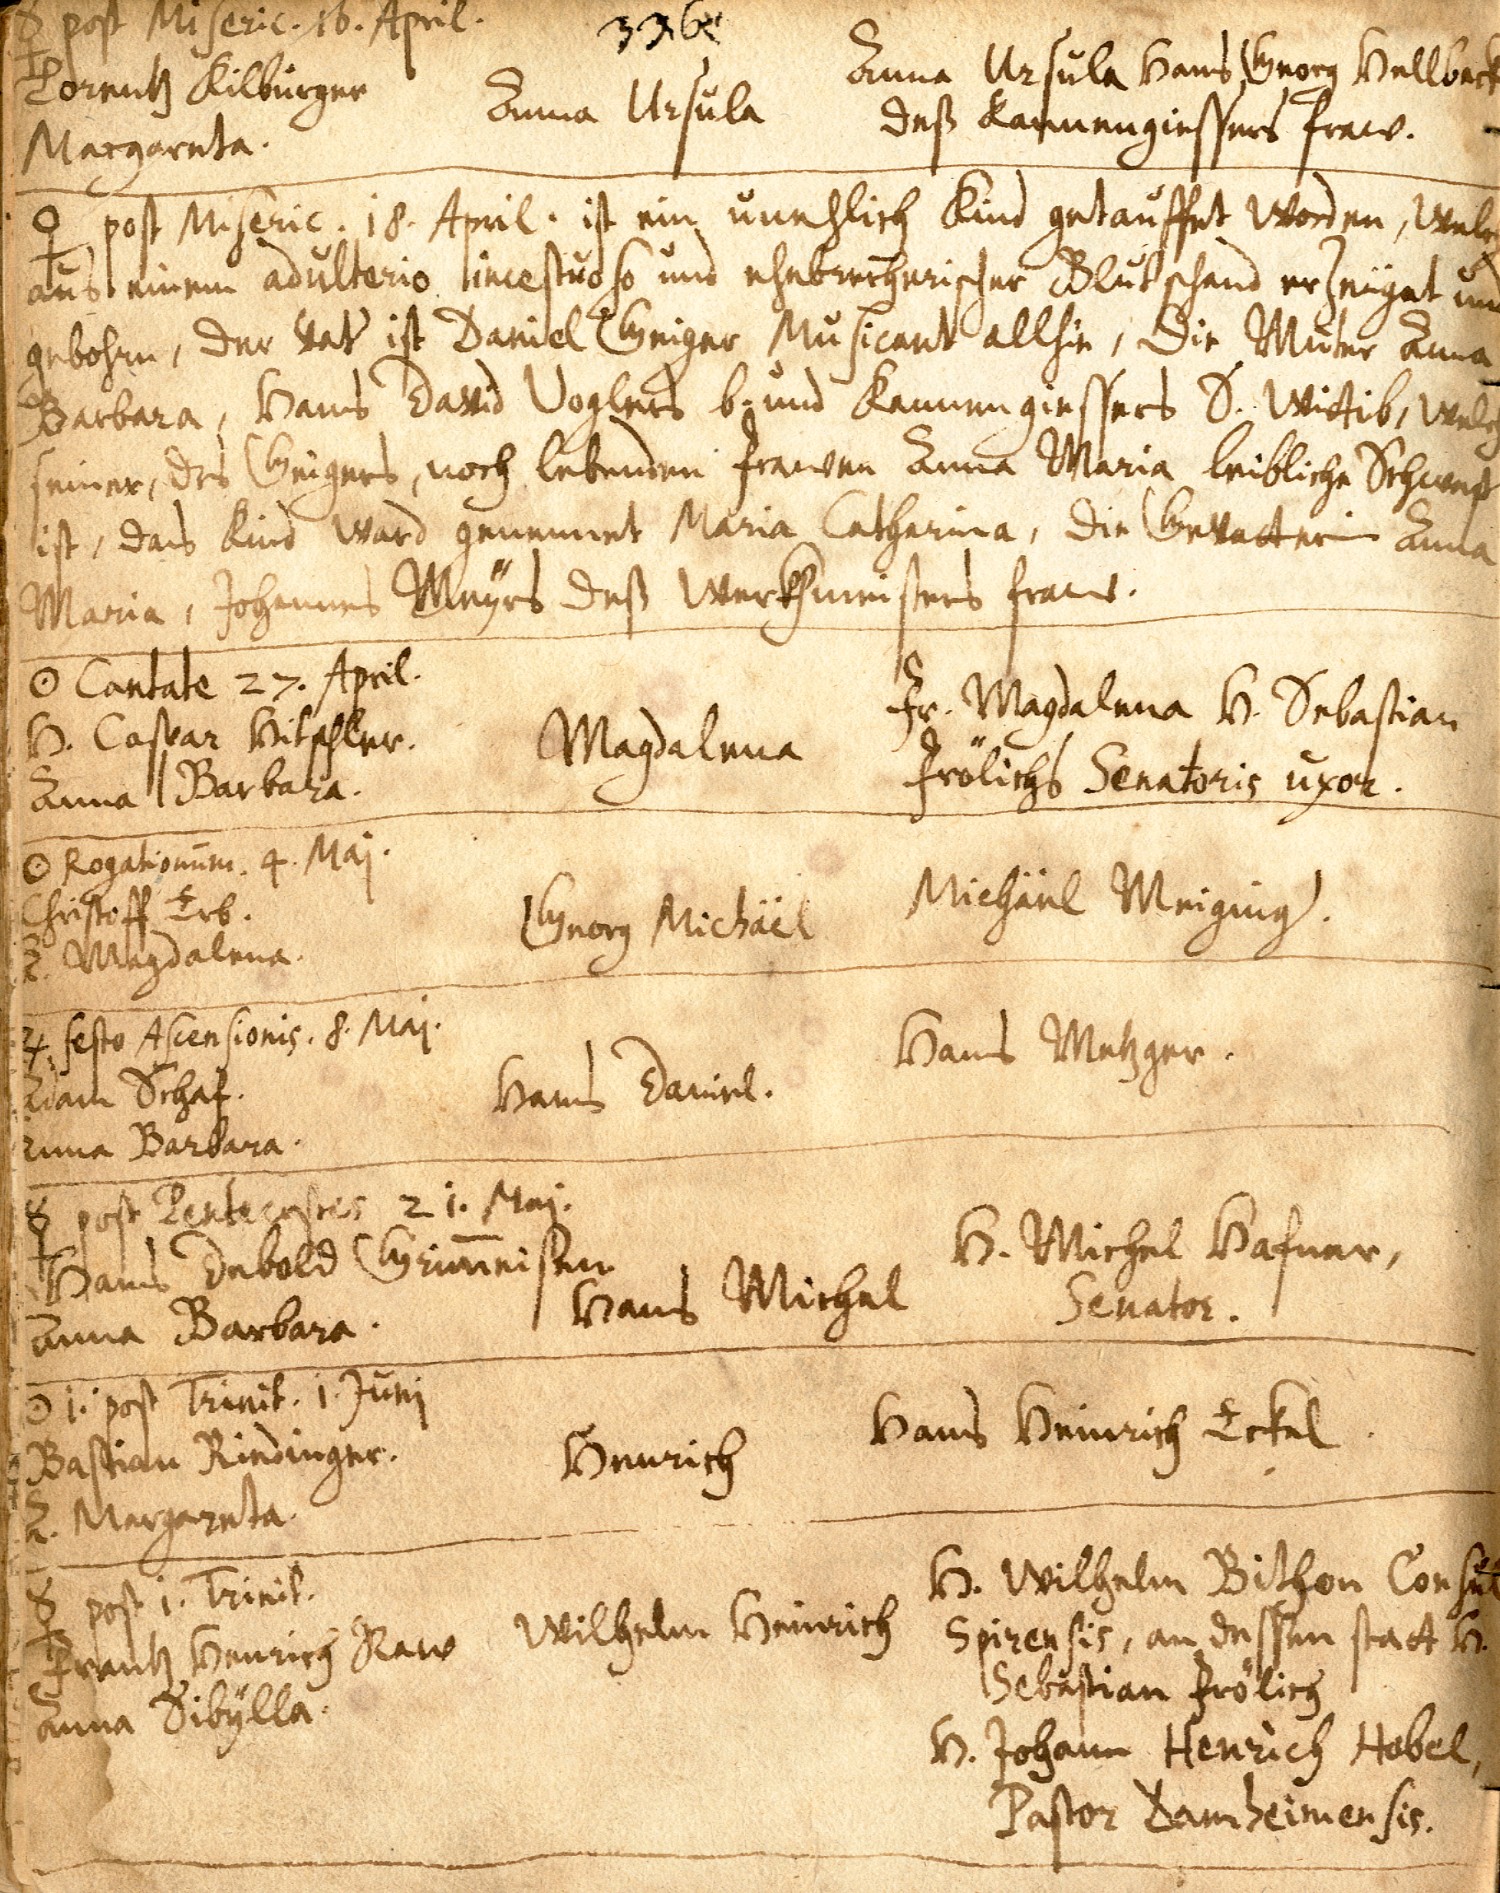 ☿ post Miseric. 16. April.
Lorentz Kilburger
Margareta.
Anna Ursula
Anna Ursula Hans Georg Hellbeck
deß Kannengiessers fraw.
♀ post Miseric. 18. April. ist ein unehlich Kind getauffet worden, welch
aus einem adulterio incestuoso und ehebrecherischer Blutschand erzeüget und
gebohrn, der Vatr ist Daniel Geiger Musicant allhie, die Muter Anna
Barbara, Hans David Voglers b. und Kannengiessers S. Wittib, welch
seiner, des Geigers, noch lebenden frawen Anna Maria leibliche Schwest
ist, das Kind ward genennet Maria Catharina, die Gevatterin Anna
Maria, Johannes Meÿrs deß Werckmeisters fraw.
☉ Cantate 27. April.
H. Caspar Hitschler.
Anna Barbara.
Magdalena
Fr. Magdalena H. Sebastian
Frölichs Senatoris uxor.
☉ Rogationum. 4. Maj.
Christoff Erb.
A. Magdalena.
Georg Michäel
Michäel Meiging.
♃ festo Ascensionis. 8. Maj.
Adam Schaf.
Anna Barbara.
Hans Daniel.
Hans Metzger.
☿ post Pentecostes 21. Maj.
Hans Debold Grimmeisen
Anna Barbara.
Hans Michel
H. Michel Hafner,
Senator.
☉ 1. post Trinit. 1. Junj
Bastian Riedinger.
A. Margareta.
Henrich
Hans Heinrich Eckel.
☿ post 1. Trinit.
Frantz Henrich Raw
Anna Sibÿlla.
Wilhelm Heinrich
H. Wilhelm Bithon Consul
Spirensis, an dessen statt H.
Sebastian Frölich
H. Johann Henrich Hebel,
Pastor Damheimensis.